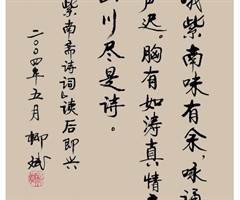 哦紫南味有余，咏诵
声迟，胸有如涛真情
山川尽是诗。
紫南斋诗词』读后即兴
二〇〇四年五月 柳斌